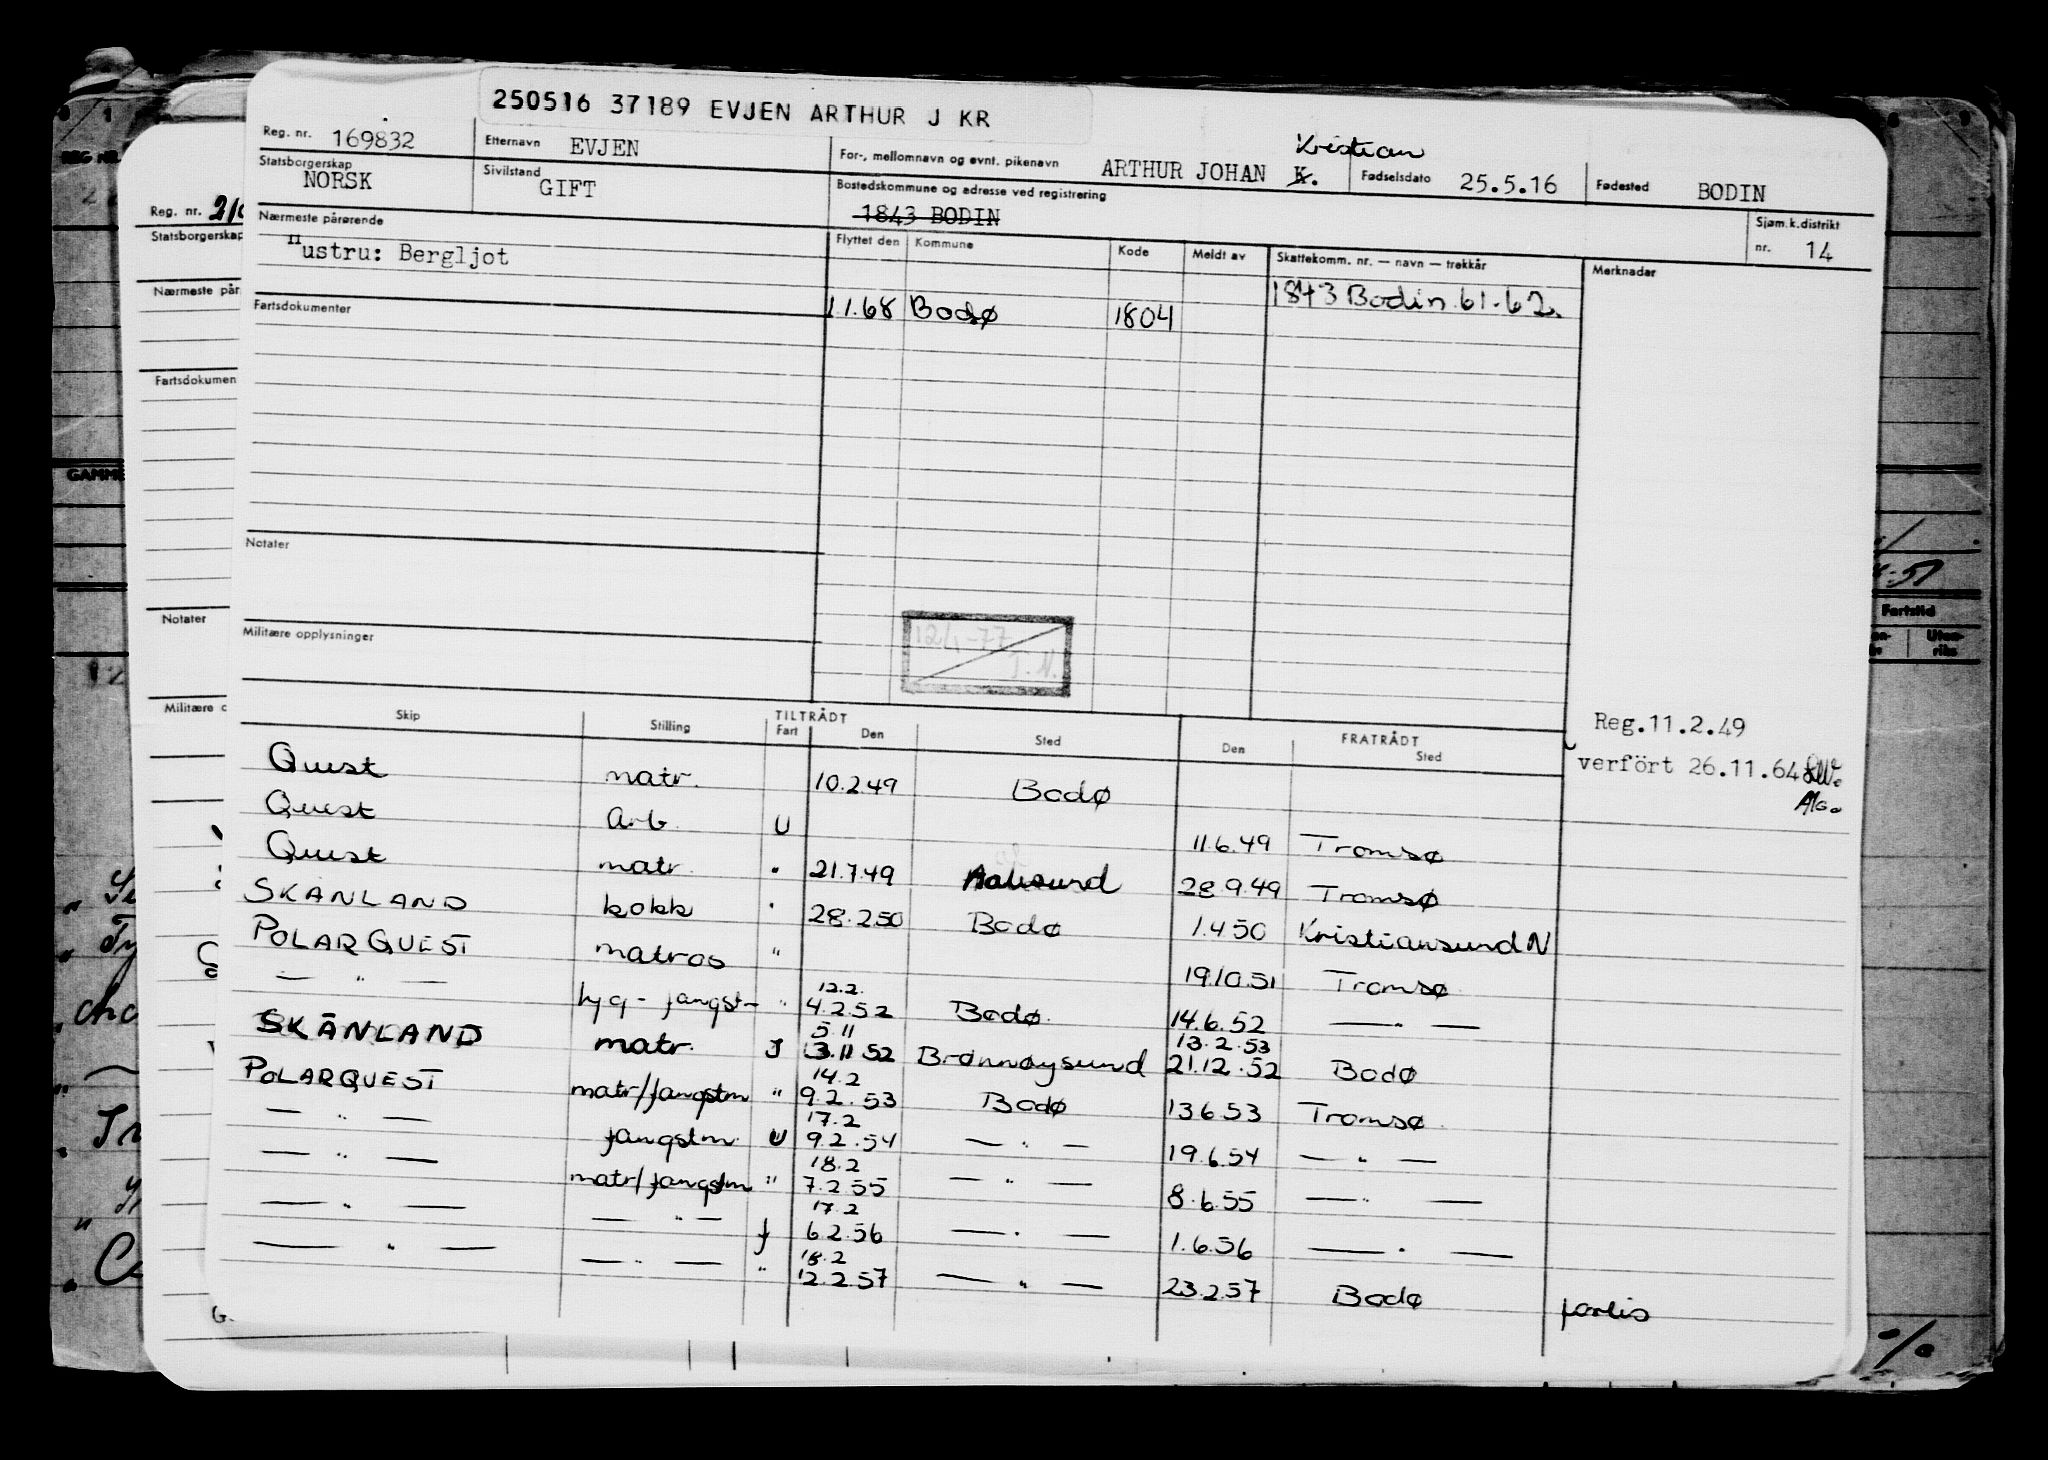 250516 37189 EVJEN ARTHUR J KR
Reg. nr. 169832 Etternavn EVJEN For-, mellomnavn og evnt. pikenavn ARTHUR JOHAN K. Kristian Fødselsdato 25.5.16 Fødested BODIN
Statsborgerskap NORSK Sivilstand GIFT Bostedskommune og adresse ved registrering 1843 BODIN Sjøm.k.distrikt nr. 14
Nærmeste pårørende Flyttet den Kommune Kode Meldt av Skattekomm. nr. — navn — trekkår Merknader
Hustru: Bergljot
1.1.68 Bodø 1804 1843 Bodin 61-62.
Fartsdokumenter
Notater
Militære opplysninger
Reg.11.2.49
verført 26.11.64
Skip Stilling TILTRÅDT Fart Den Sted FRATRÅDT Den Sted
Quest matr. 10.2.49 Bodø
Quest Arb. U 11.6.49 Tromsø
Quest matr. " 21.7.49 Aalesund 28.9.49 Tromsø
SKÅNLAND kokk " 28.2.50 Bodø 1.4.50 Kristiansund N
POLARQUEST matros " 19.10.51 Tromsø
— " — " 12.2. 4.2.52 Bodø 14.6.52 — " —
SKÅNLAND matr. J 5.11 3.11.52 Brønnøysund 13.2.53 21.12.52 Bodø
POLARQUEST matr/fangstm " 14.2 9.2.53 Bodø 13.6.53 Tromsø
— " — fangstm. U 17.2 9.2.54 — " — 19.6.54 — " —
— " — matr/fangstm " 18.2 7.2.55 — " — 8.6.55 — " —
— " — — " — f 17.2 6.2.56 — " — 1.6.56 — " —
— " — — " — " 18.2 12.2.57 — " — 23.2.57 Bodø forlis
Reg. nr.
Statsborgerskap
Nærmeste pår
Fartsdokumen
Notater
Militære o
GAMME
Fartstid